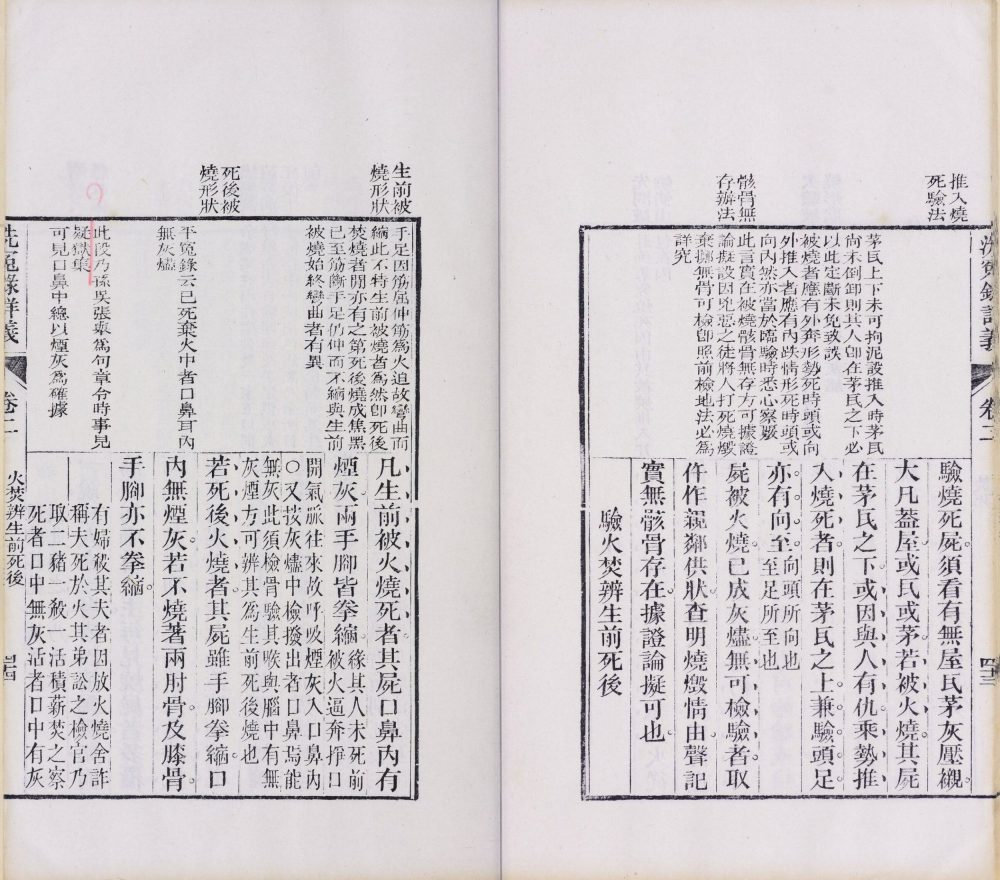 洗冤錄詳義
卷二
四三
推入燒
死驗法
茅瓦上下未可拘泥設推入時茅瓦
尚未倒卸則其人卽在茅瓦之下必
以此定斷未免致誤
被燒者應有外奔形勢死時頭或向
外推入者應有內跌情形死時頭或
向內然亦當於臨驗時悉心察覈
骸骨無
存辨法
此言實在被燒骸骨無存方可據證
論擬設因兇惡之徒將人打死燒燬
棄擲無骨可檢卽照前檢地法必爲
詳究
驗燒死屍須看有無屋瓦茅灰壓襯。
大凡蓋屋或瓦或茅若被火燒其屍
在茅瓦之下或因與人有仇乘勢推
入燒死者則在茅瓦之上兼驗頭足
亦有向至。向頭所向也
至足所至也
屍被火燒已成灰燼無可檢驗者取
仵作親鄰供狀查明燒燬情由聲記
實無骸骨存在據證論擬可也。
驗火焚辨生前死後
生前被
燒形狀
手足因筋屈伸筋爲火迫故彎曲而
縮此不特生前被燒者爲然卽死後
焚燒者間亦有之第死後燒成焦黑
已至筋斷手足仍伸而不縮與生前
被燒始終彎曲者有異
死後被
燒形狀
平冤錄云已死棄火中者口鼻耳內
無灰燼
此段乃孫吳張舉爲句章令時事見
疑獄集
可見口鼻中總以煙灰爲確據
凡生前被火燒死者其屍口鼻內有
煙灰兩手腳皆拳縮。緣其人未死前
被火逼奔掙口
開氣脈往來故呼吸煙灰入口鼻內
○又按灰燼中檢撥出者口鼻焉能
無灰此須檢骨驗其喉與腦中有無
灰煙方可辨其爲生前死後燒也
若死後火燒者其屍雖手腳拳縮口
內無煙灰若不燒著兩肘骨及膝骨
手腳亦不拳縮。
有婦殺其夫者因放火燒舍詐
稱夫死於火其弟訟之檢官乃
取二豬一殺一活積薪焚之察
死者口中無灰活者口中有灰
洗冤錄詳義
卷二
火焚辨生前死後
四四